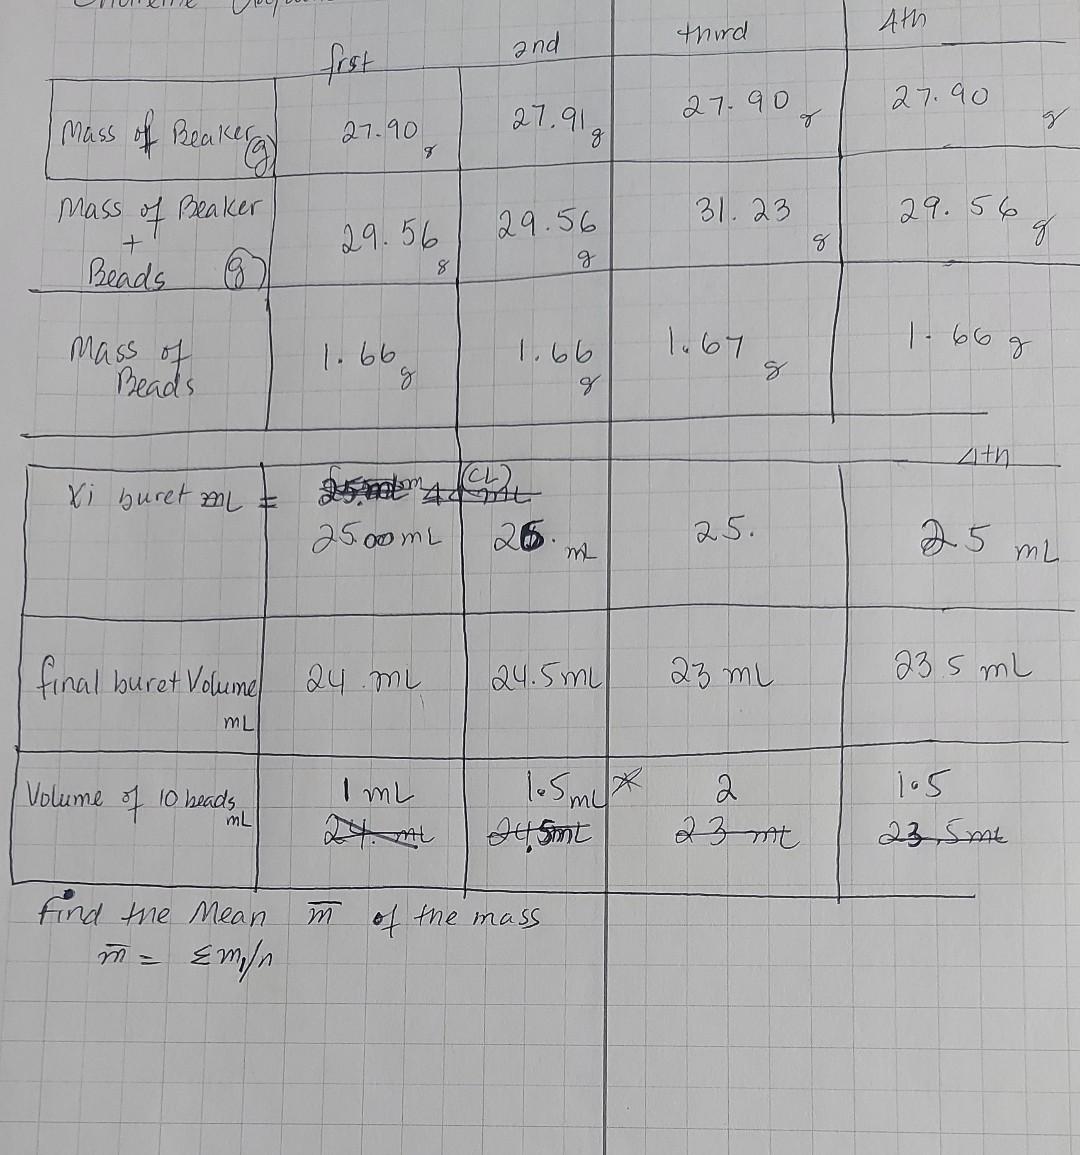 first 2nd third 4th
Mass of Beaker (g) 27.90 g 27.91 g 27.90 g 27.90 g
Mass of Beaker + Beads (g) 29.56 g 29.56 g 31.23 g 29.56 g
Mass of Beads 1.66 g 1.66 g 1.67 g 1.66 g
4th
(CL)
Xi buret mL = 25.00 mL 26. mL 25. 25 mL
final buret Volume mL 24. mL 24.5 mL 23 mL 23 5 mL
Volume of 10 beads mL 1 mL 1.5 mL * 2 1.5
24. mL 24.5mL 23 mL 23.5mL
Find the Mean m̅ of the mass
m̅ = Σmi/n